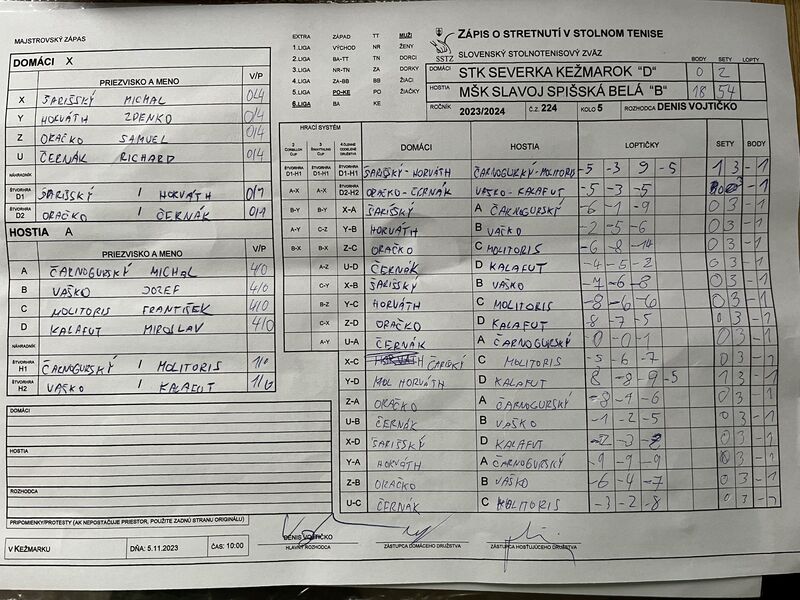 MAJSTROVSKÝ ZÁPAS
EXTRA ZÁPAD TT MUŽI
1.LIGA VÝCHOD NR ŽENY
2.LIGA BA-TT TN DORCI
3.LIGA NR-TN ZA DORKY
4.LIGA ZA-BB BB ŽIACI
5.LIGA PO-KE PO ŽIAČKY
6.LIGA BA KE
SSTZ
ZÁPIS O STRETNUTÍ V STOLNOM TENISE
SLOVENSKÝ STOLNOTENISOVÝ ZVÄZ
BODY SETY LOPTY
DOMÁCI STK SEVERKA KEŽMAROK "D" 0 2
HOSTIA MŠK SLAVOJ SPIŠSKÁ BELÁ "B" 18 54
ROČNÍK 2023/2024 Č.Z. 224 KOLO 5 ROZHODCA DENIS VOJTIČKO
DOMÁCI X
PRIEZVISKO A MENO V/P
X ŠARIŠSKÝ MICHAL 0/4
Y HORVÁTH ZDENKO 0/4
Z ORAČKO SAMUEL 0/4
U ČERNÁK RICHARD 0/4
NÁHRADNÍK
ŠTVORHRA D1 ŠARIŠSKÝ / HORVÁTH 0/1
ŠTVORHRA D2 ORAČKO / ČERNÁK 0/1
HOSTIA A
PRIEZVISKO A MENO V/P
A ČARNOGURSKÝ MICHAL 4/0
B VAŠKO JOZEF 4/0
C MOLITORIS FRANTIŠEK 4/0
D KALAFUT MIROSLAV 4/0
NÁHRADNÍK
ŠTVORHRA H1 ČARNOGURSKÝ / MOLITORIS 1/0
ŠTVORHRA H2 VAŠKO / KALAFUT 1/0
DOMÁCI
HOSTIA
ROZHODCA
PRIPOMIENKY/PROTESTY (AK NEPOSTAČUJE PRIESTOR, POUŽITE ZADNÚ STRANU ORIGINÁLU)
V KEŽMARKU DŇA: 5.11.2023 ČAS: 10:00
HRACÍ SYSTÉM
DOMÁCI HOSTIA LOPTIČKY SETY BODY
D1-H1 D1-H1 D1-H1 ŠARIŠSKÝ-HORVÁTH ČARNOGURSKÝ-MOLITORIS -5 -3 9 -5 1 3 -1
A-X A-X D2-H2 ORAČKO-ČERNÁK VAŠKO-KALAFUT -5 -3 -5 0 3 -1
B-Y B-Y X-A ŠARIŠSKÝ A ČARNOGURSKÝ -6 -1 -9 0 3 -1
A-Y C-Z Y-B HORVÁTH B VAŠKO -2 -5 -6 0 3 -1
B-X B-X Z-C ORAČKO C MOLITORIS -6 -8 -14 0 3 -1
A-Z U-D ČERNÁK D KALAFUT -4 -5 -2 0 3 -1
C-Y X-B ŠARIŠSKÝ B VAŠKO -7 -6 -8 0 3 -1
B-Z Y-C HORVÁTH C MOLITORIS -8 -6 -6 0 3 -1
C-X Z-D ORAČKO D KALAFUT -8 -7 -5 0 3 -1
A-Y U-A ČERNÁK A ČARNOGURSKÝ -0 -0 -1 0 3 -1
X-C C MOLITORIS -5 -6 -7 0 3 -1
Y-D HORVÁTH D KALAFUT 8 -8 -9 -5 1 3 -1
Z-A ORAČKO A ČARNOGURSKÝ -8 -4 -6 0 3 -1
U-B ČERNÁK B VAŠKO -1 -2 -5 0 3 -1
X-D ŠARIŠSKÝ D KALAFUT 0 3 -1
Y-A HORVÁTH A ČARNOGURSKÝ -9 -9 -9 0 3 -1
Z-B ORAČKO B VAŠKO -6 -4 -7 0 3 -1
U-C ČERNÁK C MOLITORIS -3 -2 -8 0 3 -1
DENIS VOJTIČKO
HLAVNÝ ROZHODCA ZÁSTUPCA DOMÁCEHO DRUŽSTVA ZÁSTUPCA HOSŤUJÚCEHO DRUŽSTVA